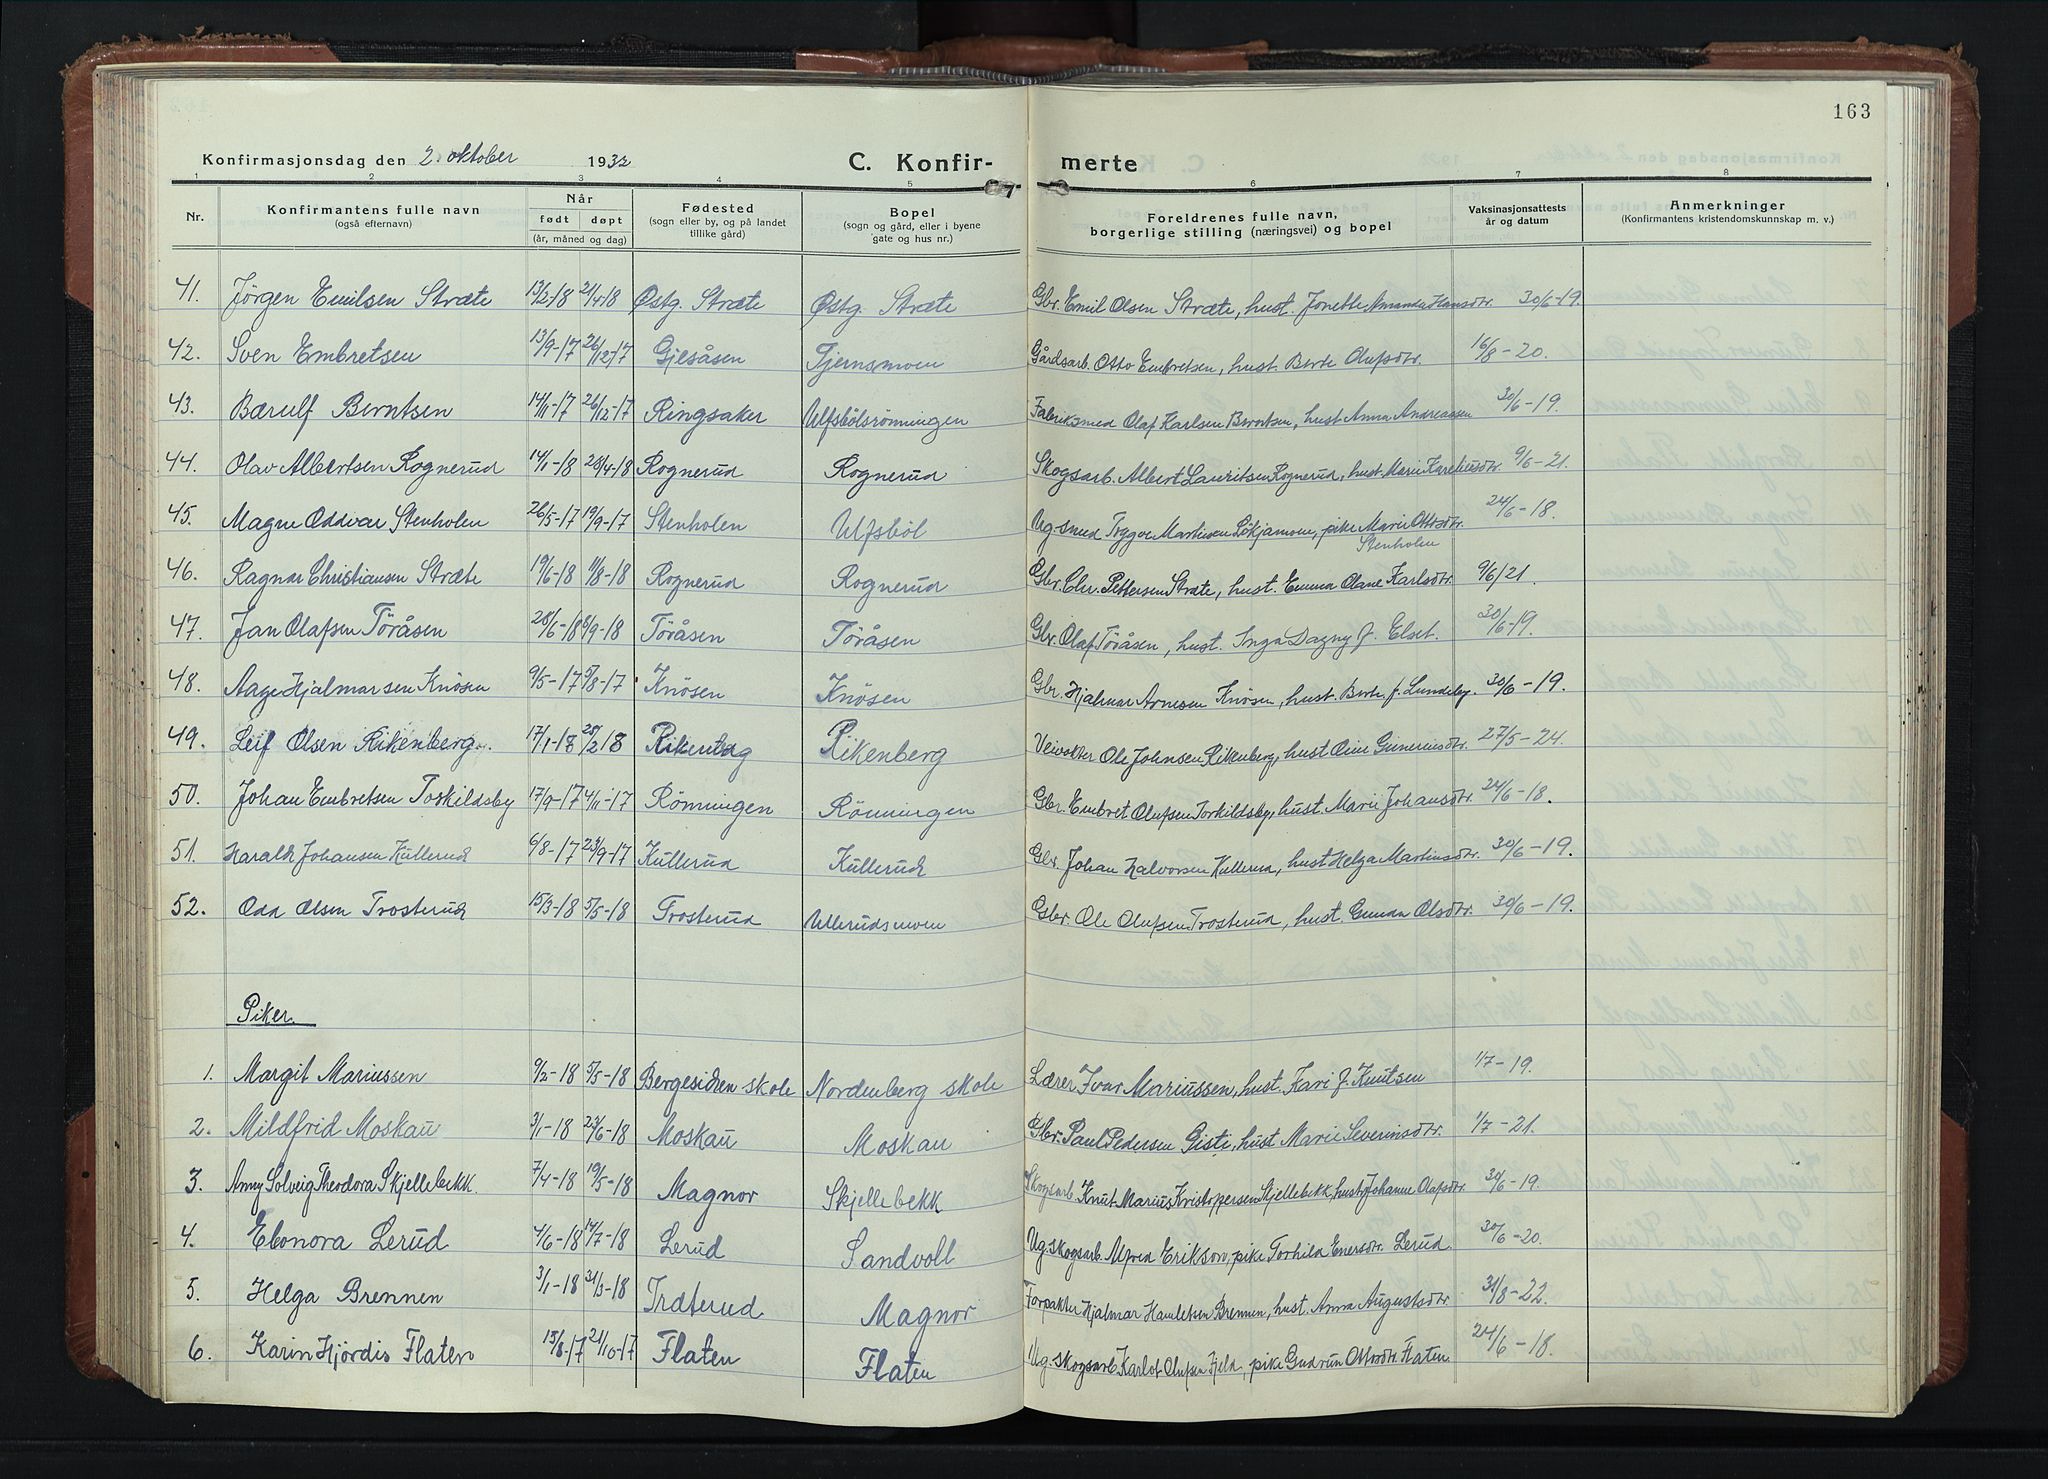 163
Konfirmasjonsdag den 2. oktober 1932 C. Konfir- merte
1 2 3 4 5 6 7 8
Nr. Konfirmantens fulle navn (også efternavn) Når født døpt (år, måned og dag) Fødested (sogn eller by, og på landet tillike gård) Bopel (sogn og gård, eller i byene gate og hus nr.) Foreldrenes fulle navn, borgerlige stilling (næringsvei) og bopel Vaksinasjonsattests år og datum Anmerkninger (Konfirmantens kristendomskunnskap m. v.)
41. Jörgen Emilsen Stræte 13/2-18 21/4-18 Østg. Stræte Østg. Stræte Gbr. Emil Olsen Stræte, hust. Jonette Amanda Hansdtr. 30/6-19.
42. Sven Embretsen 13/9-17 26/12-17 Gjesåsen Tjernsmoen Gårdsarb. Otto Embretsen, hust. Berte Olufsdtr. 16/8-20.
43. Bærulf Berntsen 14/11-17 26/12-17 Ringsaker Ulfsbölsrönningen Fabriksmed Olaf Karlsen Berntsen, hust. Anna Andreassen 30/6-19.
44. Olav Albertsen Rognerud 14/1-18 28/4-18 Rognerud Rognerud Skogsarb. Albert Lauritsen Rognerud, hust. Marie Kareliusdtr. 9/6-21.
45. Magne Oddvar Stenholen 26/5-17 19/9-17 Stenholen Ulfsböl Ug. smed Trygve Martinsen Lökjamoen, pike Marie Ottosdtr. Stenholen 24/6-18.
46. Ragnar Christiansen Stræte 19/6-18 11/8-18 Rognerud Rognerud Gbr. Chr. Pettersen Stræte, hust. Emma Olane Karlsdtr. 9/6/21.
47. Jan Olafsen Töråsen 28/6-18 8/9-18 Töråsen Töråsen Gbr. Olaf Töråsen, hust. Inga Dagny f. Elset. 30/6-19.
48. Aage Hjalmarsen Knösen 9/5-17 5/8-17 Knösen Knösen Gbr. Hjalmar Arnesen Knösen, hust. Berte f. Lundeby. 30/6-19.
49. Leif Olsen Rikenberg. 17/1-18 25/2 18 Rikenberg Rikenberg Veivokter Ole Johnsen Rikenberg, hust. Oline Guneriusdtr. 27/5-24.
50. Johan Embretsen Toskildsby 17/9-17 4/11-17 Rönningen Rönningen Gbr. Embret Olufsen Torkildsby, hust. Marie Johansdtr. 24/6-18.
51. Harald Johansen Kullerud 6/8-17 23/9-17 Kullerud Kullerud Gbr. Johan Halvorsen Kullerud, hust Helga Martinsdtr. 30/6-19.
52. Odd Olsen Trosterud 15/3-18 5/5-18 Trosterud Ullerudsmoen Gbr. Ole Olufsen Trosterud, hust. Gunda Olsdtr. 30/6-19.
Piker.
1. Margit Mariussen 9/2-18 5/5-18 Bergesiden skole Nordenberg skole Lærer Ivar Mariussen, hust. Kari f. Knutsen 1/7-19.
2. Mildfrid Moskau 3/1-18 23/6-18 Moskau Moskau Gbr. Paul Pedersen Gisti, hust. Marie Severinsdtr. 1/7-21.
3. Anny Solveig Theodora Skjellebekk. 7/4-18 19/5-18 Magnor Skjellebekk Skogsarb. Knut Marius Kristoffersen Skjellebekk, hustr. Johanne Olafsdtr. 30/6-19.
4. Elonora Lerud 4/6-18 14/7-18 Lerud Sandvoll Ug. skogsarb. Alfred Erikson, pike Torhild Enersdtr. Lerud. 30/6-20.
5. Helga Brennen 3/1-18 31/3-18 Træterud Magnor Forpakter Hjalmar Hamletsen Brennen, hust. Anna Augustsdtr. 31/8-22.
6. Karin Hjördis Flaten 15/8-17 21/10-17 Flaten Flaten Ug. skogsarb. Karlot Olufsen Fjeld, pike Gudrun Ottosdtr. Flaten. 24/6-18.